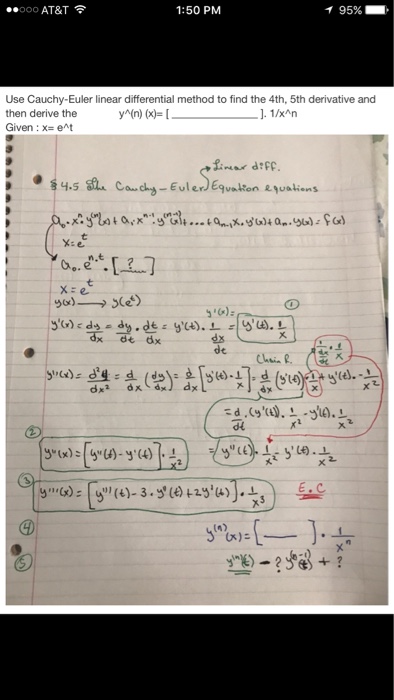 ●●○○○ AT&T 1:50 PM 95%
Use Cauchy-Euler linear differential method to find the 4th, 5th derivative and
then derive the y^(n) (x)= [ ____________ ]. 1/x^n
Given : x= e^t
Linear diff.
§ 4.5 The Cauchy-Euler Equation equations
a₀.xⁿ.y⁽ⁿ⁾(x)+a₁.xⁿ⁻¹.y⁽ⁿ⁻¹⁾+...+aₙ₋₁.x.y'(x)+aₙ.y(x)=f(x)
x=e^t
a₀.e^n.t.[ ? ]
x=e^t
y(x) → y(e^t)
y'(x) = dy/dx = dy/dt . dt/dx = y'(t). 1/(dx/dt) = y'(x)= y'(t). 1/x ①
Chain R.
y''(x) = d²y/dx² = d/dx (dy/dx) = d/dx [y'(t).1/x] = d/dx (y'(t)) 1/x + y'(t).-1/x²
= d/dt.(y'(t)).1/x² - y'(t).1/x²
② y''(x)=[y''(t)-y'(t)].1/x² = y''(t).1/x² - y'(t).1/x²
③ y'''(x)=[y'''(t)-3.y''(t)+2y'(t)].1/x³ E.C
④ y⁽ⁿ⁾(x)=[ __ ].1/xⁿ
⑤ y⁽ⁿ⁾(t) - ? y⁽ⁿ⁻¹⁾(t) + ?